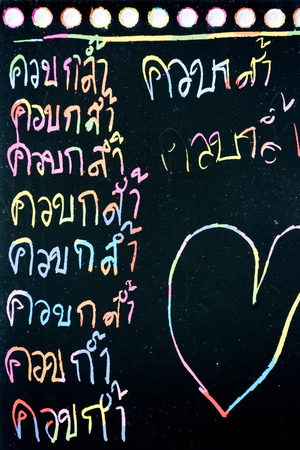 ควบกล้ำ
ควบกล้ำ
ควบกล้ำ
ควบกล้ำ
ควบกล้ำ
ควบกล้ำ
ควบก้ำ
ควบก้ำ
ควบกล้ำ
ควบกล้ำ